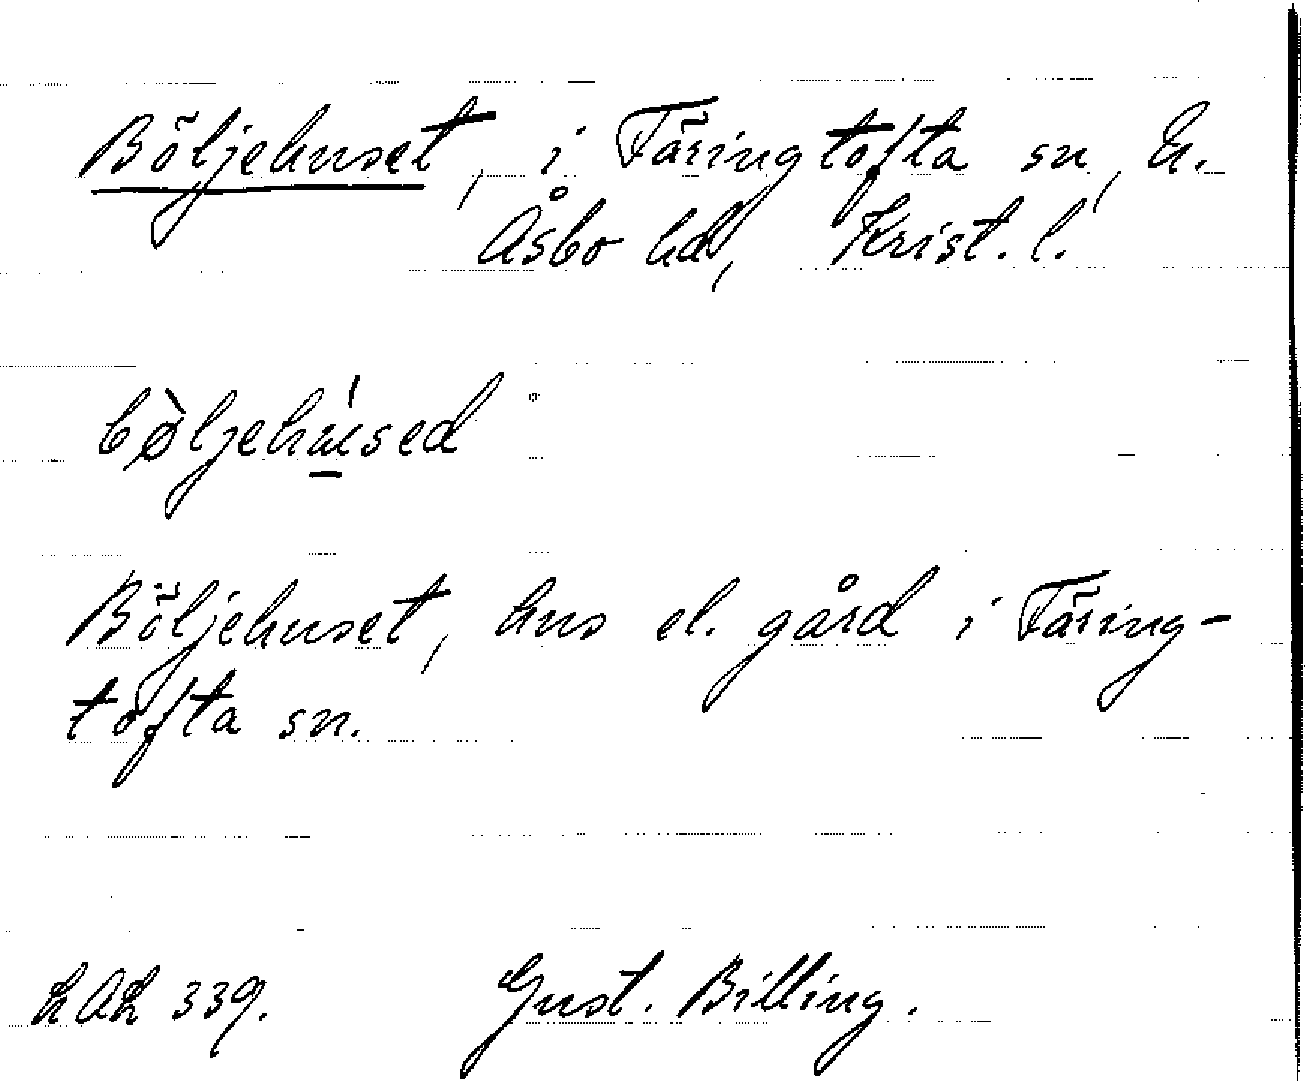 Böljehuset, i Färingtofta sn, N.
Åsbo hd, Krist. l.
bø̀ljehúsed
Böljehuset, hus el. gård i Färing-
tofta sn.
Gust. Billing.